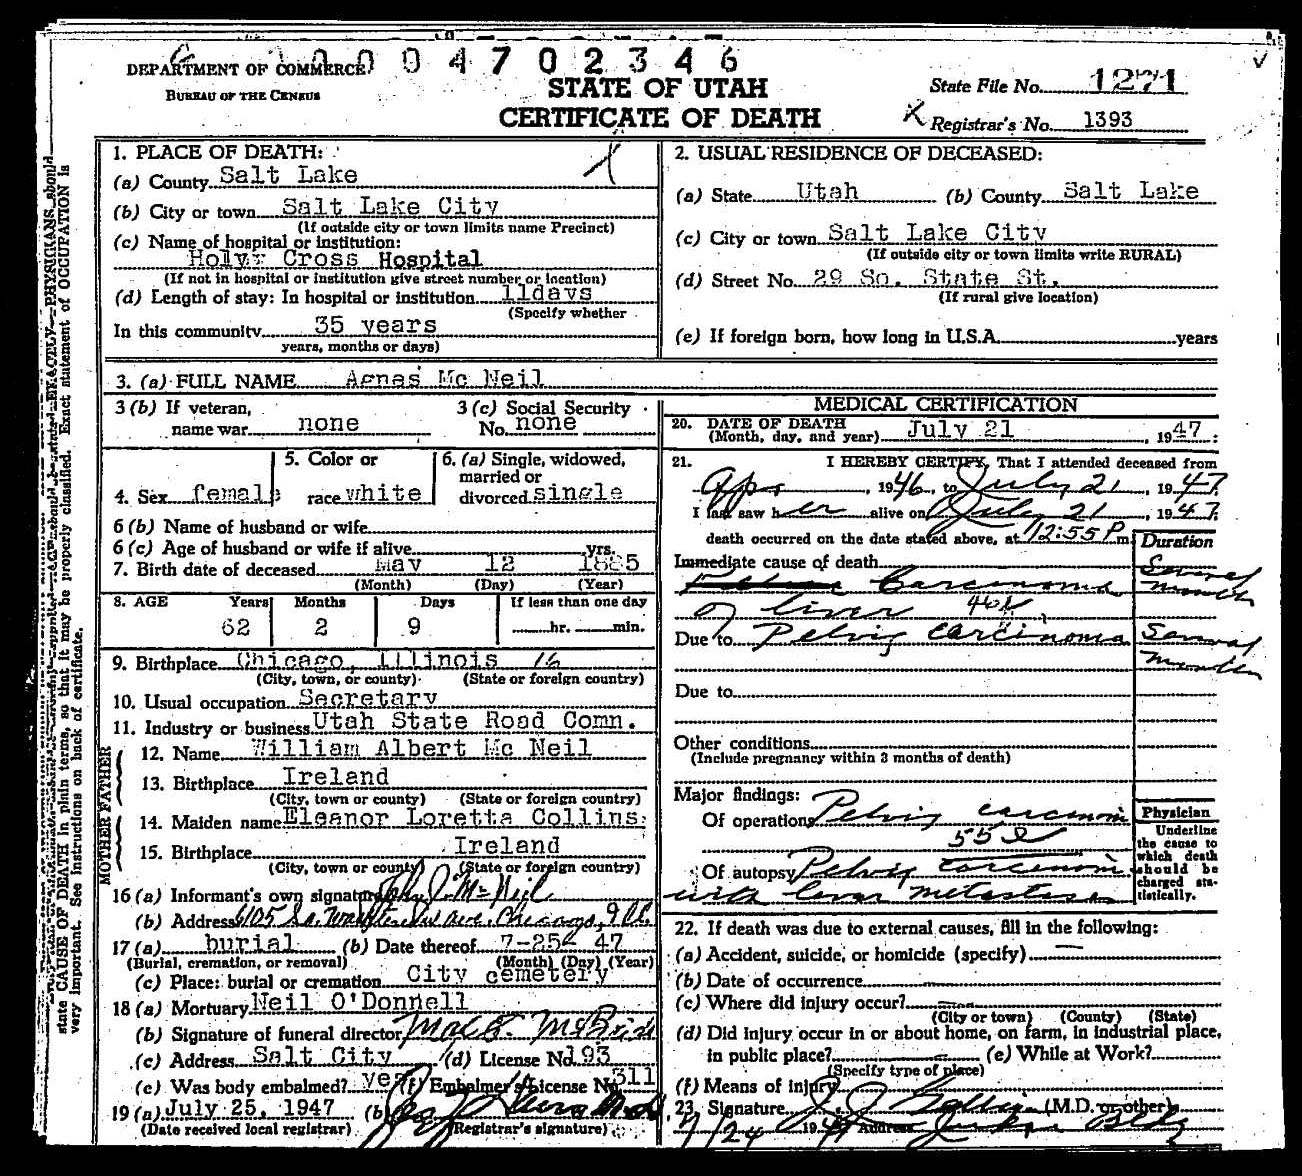 1000 4702346
DEPARTMENT OF COMMERCE
BUREAU OF THE CENSUS
STATE OF UTAH
CERTIFICATE OF DEATH
State File No. 1271
Registrar's No. 1393
1. PLACE OF DEATH:
(a) County Salt Lake
(b) City or town Salt Lake City
(If outside city or town limits name Precinct)
(c) Name of hospital or institution:
Holy Cross Hospital
(If not in hospital or institution give street number or location)
(d) Length of stay: In hospital or institution 11days
(Specify whether
In this community 35 years
years, months or days)
2. USUAL RESIDENCE OF DECEASED:
(a) State Utah (b) County Salt Lake
(c) City or town Salt Lake City
(If outside city or town limits write RURAL)
(d) Street No. 29 So. State St.
(If rural give location)
(e) If foreign born, how long in U.S.A. years
3. (a) FULL NAME Agnas Mc Neil
3 (b) If veteran, name war none
3 (c) Social Security No. none
4. Sex female
5. Color or race white
6. (a) Single, widowed, married or divorced single
6 (b) Name of husband or wife
6 (c) Age of husband or wife if alive yrs.
7. Birth date of deceased May 12 1885
(Month) (Day) (Year)
8. AGE Years Months Days If less than one day
62 2 9 hr. min.
9. Birthplace Chicago, Illinois 16
(City, town, or county) (State or foreign country)
10. Usual occupation Secretary
11. Industry or business Utah State Road Comn.
FATHER
12. Name William Albert Mc Neil
13. Birthplace Ireland
(City, town or county) (State or foreign country)
MOTHER
14. Maiden name Eleanor Loretta Collins
15. Birthplace Ireland
(City, town or county) (State or foreign country)
16 (a) Informant's own signature John J. McNeil
(b) Address 6105 So. Ave. Chicago, Ill.
17 (a) burial (b) Date thereof 7-25- 47
(Burial, cremation, or removal) (Month) (Day) (Year)
(c) Place: burial or cremation City cemetery
18 (a) Mortuary Neil O'Donnell
(b) Signature of funeral director
(c) Address Salt City (d) License No. 193
(e) Was body embalmed? yes (f) Embalmer's License No. 311
19 (a) July 25, 1947 (b)
(Date received local registrar) (Registrar's signature)
MEDICAL CERTIFICATION
20. DATE OF DEATH
(Month, day, and year) July 21, 1947
21. I HEREBY CERTIFY, That I attended deceased from
Apr, 1946, to July 21, 1947.
I last saw her alive on July 21, 1947.
death occurred on the date stated above, at 12:55 P m.
Duration
Immediate cause of death
Carcinoma Several months
of liver 46
Due to Pelvic carcinoma Several months
Due to
Other conditions
(Include pregnancy within 3 months of death)
Major findings:
Of operations Pelvic carcinoma
55
Of autopsy Pelvic carcinoma
with liver metastases
Physician
Underline the cause to which death should be charged statistically.
22. If death was due to external causes, fill in the following:
(a) Accident, suicide, or homicide (specify)
(b) Date of occurrence
(c) Where did injury occur?
(City or town) (County) (State)
(d) Did injury occur in or about home, on farm, in industrial place,
in public place? (e) While at Work?
(Specify type of place)
(f) Means of injury
23. Signature (M.D. or other)
7/24 1947 Address Bldg
state CAUSE OF DEATH in plain terms, so that it may be properly classified. Exact statement of OCCUPATION is
very important. See instructions on back of certificate.